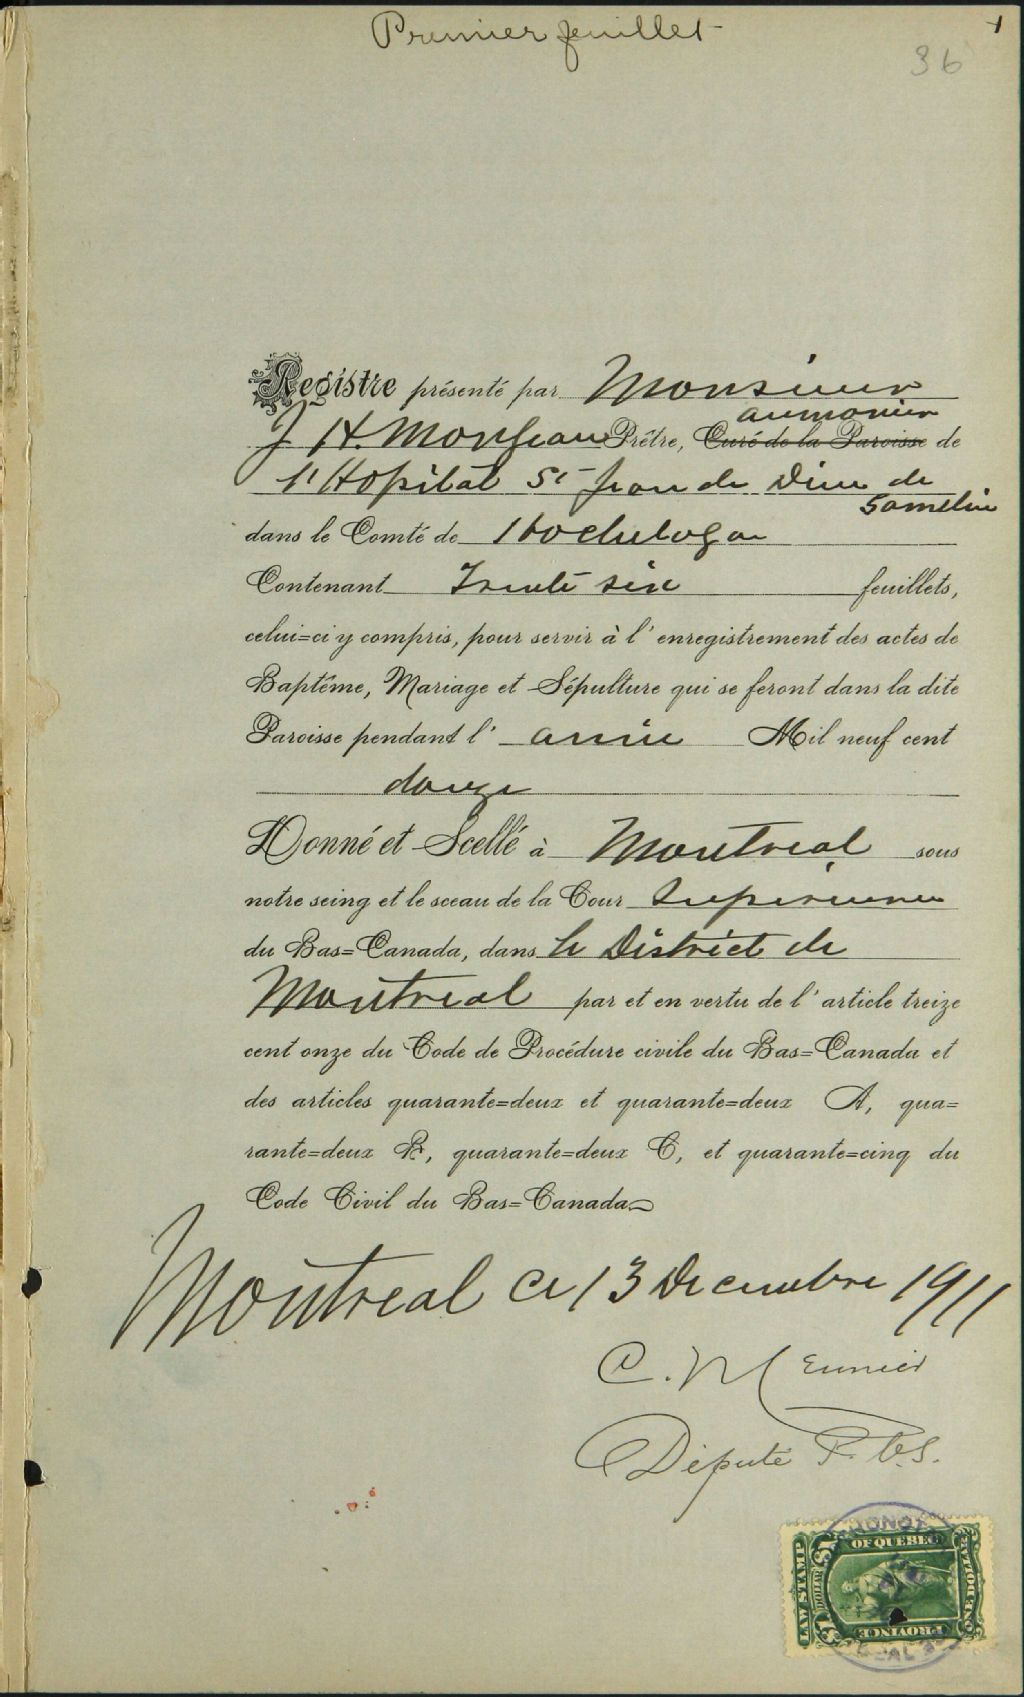 Premier feuillet
36
Registre présenté par Monsieur
aumonier
J H. Monjeau Prêtre, Curé de la Paroisse de
l'Hopital St Jean de Dieu de
Gamelin
dans le Comté de Hochelaga
Contenant Trente six feuillets,
celui=ci y compris, pour servir à l'enregistrement des actes de
Baptême, Mariage et Sépulture qui se feront dans la dite
Paroisse pendant l'année Mil neuf cent
douze
Donné et Scellé à Montreal sous
notre seing et le sceau de la Cour Superieure
du Bas=Canada, dans le District de
Montreal par et en vertu de l'article treize
cent onze du Code de Procédure civile du Bas=Canada et
des articles quarante=deux et quarante=deux A, qua=
rante=deux B, quarante=deux C, et quarante=cinq du
Code Civil du Bas=Canada
Montreal ce 13 Decembre 1911
C. Meunier
Député P. C.S.
LAW STAMP
$1 DOLLAR
OF QUEBEC
PROVINCE
ONE DOLLAR